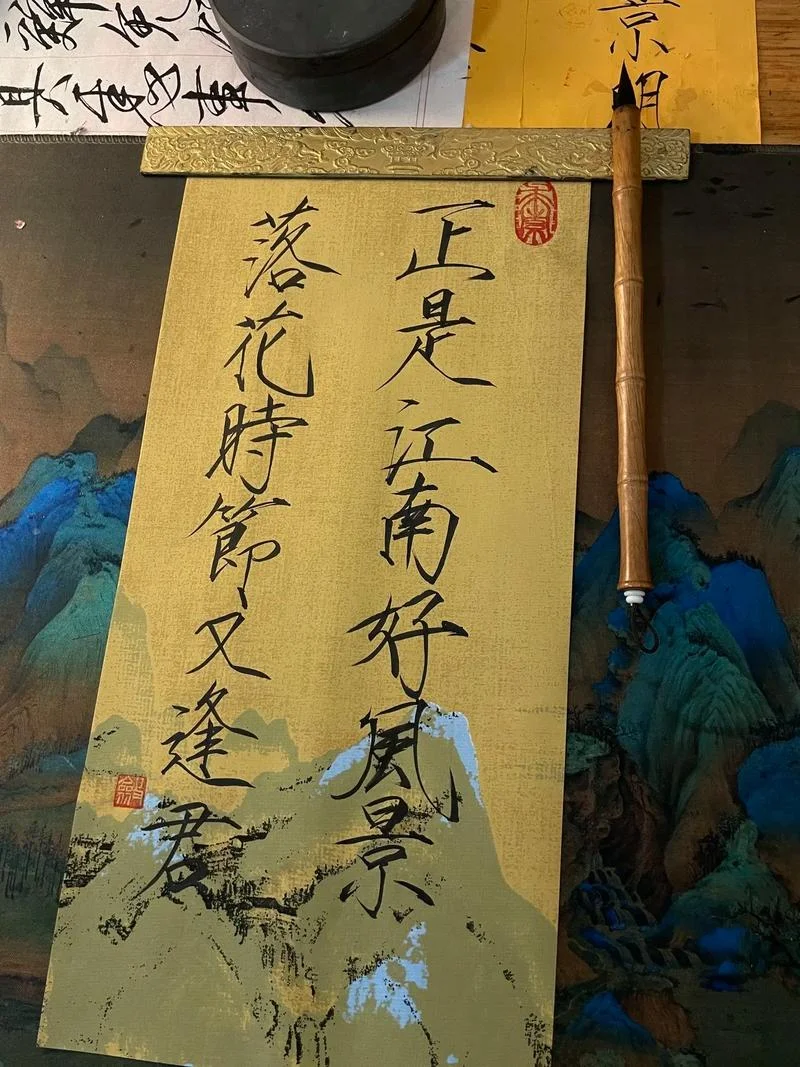 正是江南好風景
落花時節又逢君
景明